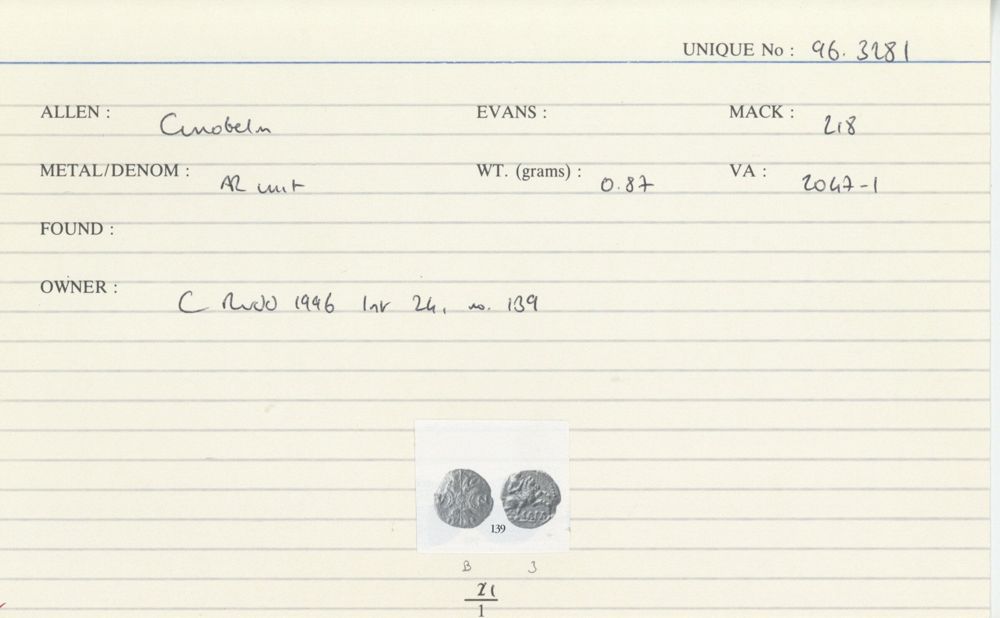 UNIQUE No : 96. 3281
ALLEN : Cunobelin EVANS : MACK : 218
METAL/DENOM : AR unit WT. (grams) : 0.87 VA : 2047-1
FOUND :
OWNER : C Rudd 1996 list 24, no. 139
139
B 3
21
1